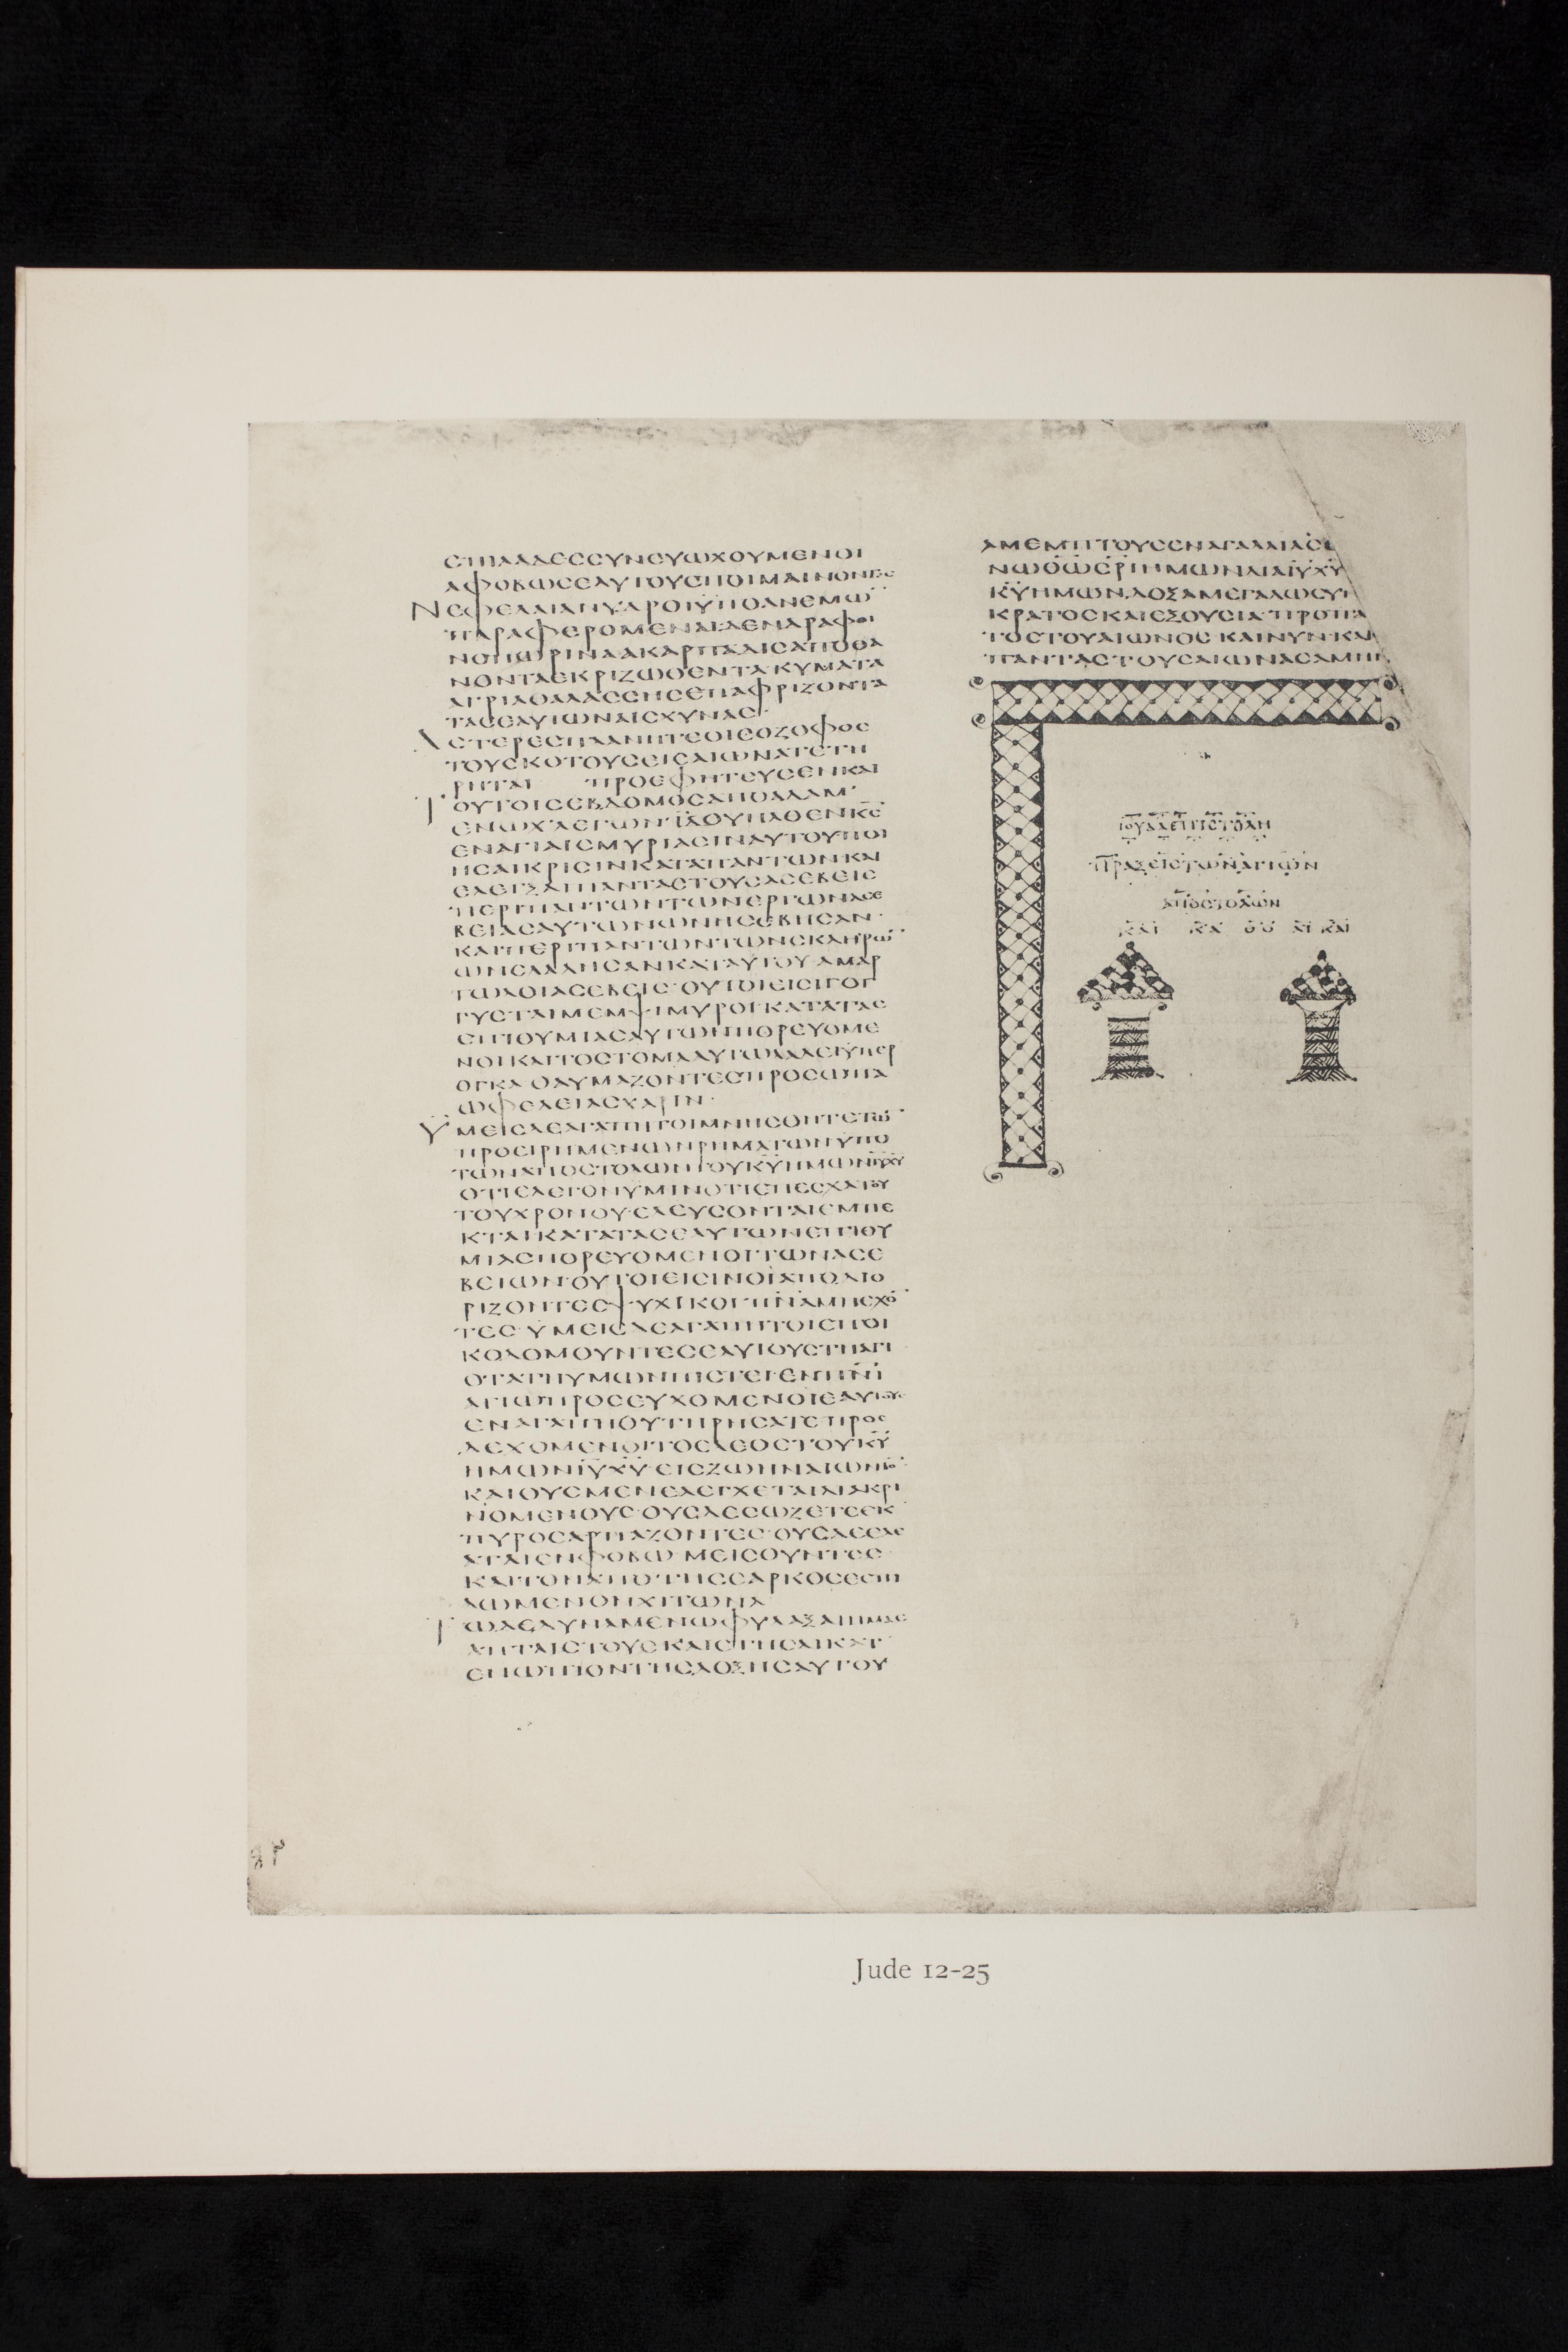 ϹΠΙΛΑΔΕϹϹΥΝΕΥΩΧΟΥΜΕΝΟΙ
ΑΦΟΒΩϹΕΑΥΤΟΥϹΠΟΙΜΑΙΝΟΝΤΕϹ
ΝΕΦΕΛΑΙΑΝΥΔΡΟΙΫΠΟΑΝΕΜΩ̅
ΠΑΡΑΦΕΡΟΜΕΝΑΙΔΕΝΔΡΑΦΘΙ
ΝΟΠΩΡΙΝΑΑΚΑΡΠΑΔΙϹΑΠΟΘΑ
ΝΟΝΤΑΕΚΡΙΖΩΘΕΝΤΑΚΥΜΑΤΑ
ΑΓΡΙΑΘΑΛΑϹϹΗϹΕΠΑΦΡΙΖΟΝΤΑ
ΤΑϹΕΑΥΤΩΝΑΙϹΧΥΝΑϹ·
ΑϹΤΕΡΕϹΠΛΑΝΗΤΕϹΟΙϹΟΖΟΦΟϹ
ΤΟΥϹΚΟΤΟΥϹΕΙϹΑΙΩΝΑΤΕΤΗ
ΡΗΤΑΙ ΠΡΟΕΦΗΤΕΥϹΕΝΚΑΙ
ΤΟΥΤΟΙϹΕΒΔΟΜΟϹΑΠΟΑΔΑΜ·
ΕΝΩΧΛΕΓΩΝ·ΪΔΟΥΗΛΘΕΝΚ̅Ϲ̅
ΕΝΑΓΙΑΙϹΜΥΡΙΑϹΙΝΑΥΤΟΥΠΟΙ
ΗϹΑΙΚΡΙϹΙΝΚΑΤΑΠΑΝΤΩΝΚΑΙ
ΕΛΕΓΞΑΙΠΑΝΤΑϹΤΟΥϹΑϹΕΒΕΙϹ
ΠΕΡΙΠΑΝΤΩΝΤΩΝΕΡΓΩΝΑϹΕ
ΒΕΙΑϹΑΥΤΩΝΩΝΗϹΕΒΗϹΑΝ·
ΚΑΙΠΕΡΙΠΑΝΤΩΝΤΩΝϹΚΛΗΡΩ̅
ΩΝΕΛΑΛΗϹΑΝΚΑΤΑΥΤΟΥΑΜΑΡ
ΤΩΛΟΙΑϹΕΒΕΙϹ·ΟΥΤΟΙΕΙϹΙΓΟΓ
ΓΥϹΤΑΙΜΕΜΨΙΜΥΡΟΙΚΑΤΑΤΑϹ
ΕΠΙΘΥΜΙΑϹΑΥΤΩΝΠΟΡΕΥΟΜΕ
ΝΟΙΚΑΙΤΟϹΤΟΜΑΑΥΤΩΛΑΛΕΙΫΠΕΡ
ΟΓΚΑΘΑΥΜΑΖΟΝΤΕϹΠΡΟϹΩΠΑ
ΩΦΕΛΕΙΑϹΧΑΡΙΝ·
ΥΜΕΙϹΔΕΑΓΑΠΗΤΟΙΜΝΗϹΘΗΤΕΤΩ̅
ΠΡΟΕΙΡΗΜΕΝΩΝΡΗΜΑΤΩΝΥΠΟ
ΤΩΝΑΠΟϹΤΟΛΩΝΤΟΥΚ̅Υ̅ΗΜΩΝΙ̅Υ̅Χ̅Υ̅
ΟΤΙΕΛΕΓΟΝΥΜΙΝΟΤΙΕΠΕϹΧΑΤΟΥ
ΤΟΥΧΡΟΝΟΥ·ΕΛΕΥϹΟΝΤΑΙΕΜΠΕ
ΚΤΑΙΚΑΤΑΤΑϹΕΑΥΤΩΝΕΠΙΘΥ
ΜΙΑϹΠΟΡΕΥΟΜΕΝΟΙΤΩΝΑϹΕ
ΒΕΙΩΝ·ΟΥΤΟΙΕΙϹΙΝΟΙΑΠΟΔΙΟ
ΡΙΖΟΝΤΕϹΨΥΧΙΚΟΙΠ̅Ν̅Α̅ΜΗΕΧΟ̅
ΤΕϹ·ΥΜΕΙϹΔΕΑΓΑΠΗΤΟΙΕΠΟΙ
ΚΟΔΟΜΟΥΝΤΕϹΕΑΥΤΟΥϹΤΗΑΓΙ
ΩΤΑΤΗΥΜΩΝΠΙϹΤΕΙ·ΕΝΠ̅Ν̅Ι̅
ΑΓΙΩΠΡΟϹΕΥΧΟΜΕΝΟΙΕΑΥΤΟΥϹ
ΕΝΑΓΑΠΗΘΥΤΗΡΗϹΑΤΕΠΡΟϹ
ΔΕΧΟΜΕΝΟΙΤΟΕΛΕΟϹΤΟΥΚ̅Υ̅
ΗΜΩΝΙ̅Υ̅Χ̅Υ̅·ΕΙϹΖΩΗΝΑΙΩΝΙΟ̅
ΚΑΙΟΥϹΜΕΝΕΛΕΓΧΕΤΑΙΔΙΑΚΡΙ
ΝΟΜΕΝΟΥϹ·ΟΥϹΔΕϹΩΖΕΤΕΕΚ
ΠΥΡΟϹΑΡΠΑΖΟΝΤΕϹ·ΟΥϹΔΕΕΛΕ
ΑΤΑΙΕΝΦΟΒΩ·ΜΕΙϹΟΥΝΤΕϹ
ΚΑΙΤΟΝΑΠΟΤΗϹϹΑΡΚΟϹΕϹΠΙ
ΛΩΜΕΝΟΝΧΙΤΩΝΑ
ΤΩΔΕΔΥΝΑΜΕΝΩΦΥΛΑΞΑΙΗΜΑϹ
ΑΠΤΑΙϹΤΟΥϹΚΑΙϹΤΗϹΑΙΚΑΤ
ΕΝΩΠΙΟΝΤΗϹΔΟΞΗϹΑΥΤΟΥ
ΑΜΕΜΠΤΟΥϹΕΝΑΓΑΛΛΙΑϹΕΙ
ΝΩΘ̅Ω̅Ϲ̅Ρ̅Ι̅ΗΜΩΝΔΙΑΙ̅Υ̅Χ̅Υ̅
Κ̅Υ̅ΗΜΩΝΔΟΞΑΜΕΓΑΛΩϹΥΝ
ΚΡΑΤΟϹΚΑΙΕΞΟΥϹΙΑΠΡΟΠΑ
ΤΟϹΤΟΥΑΙΩΝΟϹΚΑΙΝΥΝΚΑΙ
ΠΑΝΤΑϹΤΟΥϹΑΙΩΝΑϹΑΜΗΝ
ΙΟΥΔΑΕΠΙϹΤΟΛΗ
ΠΡΑΞΕΙϹΤΩΝΑΓΙΩΝ
ΑΠΟϹΤΟΛΩΝ
ΚΑΙ
Jude 12-25